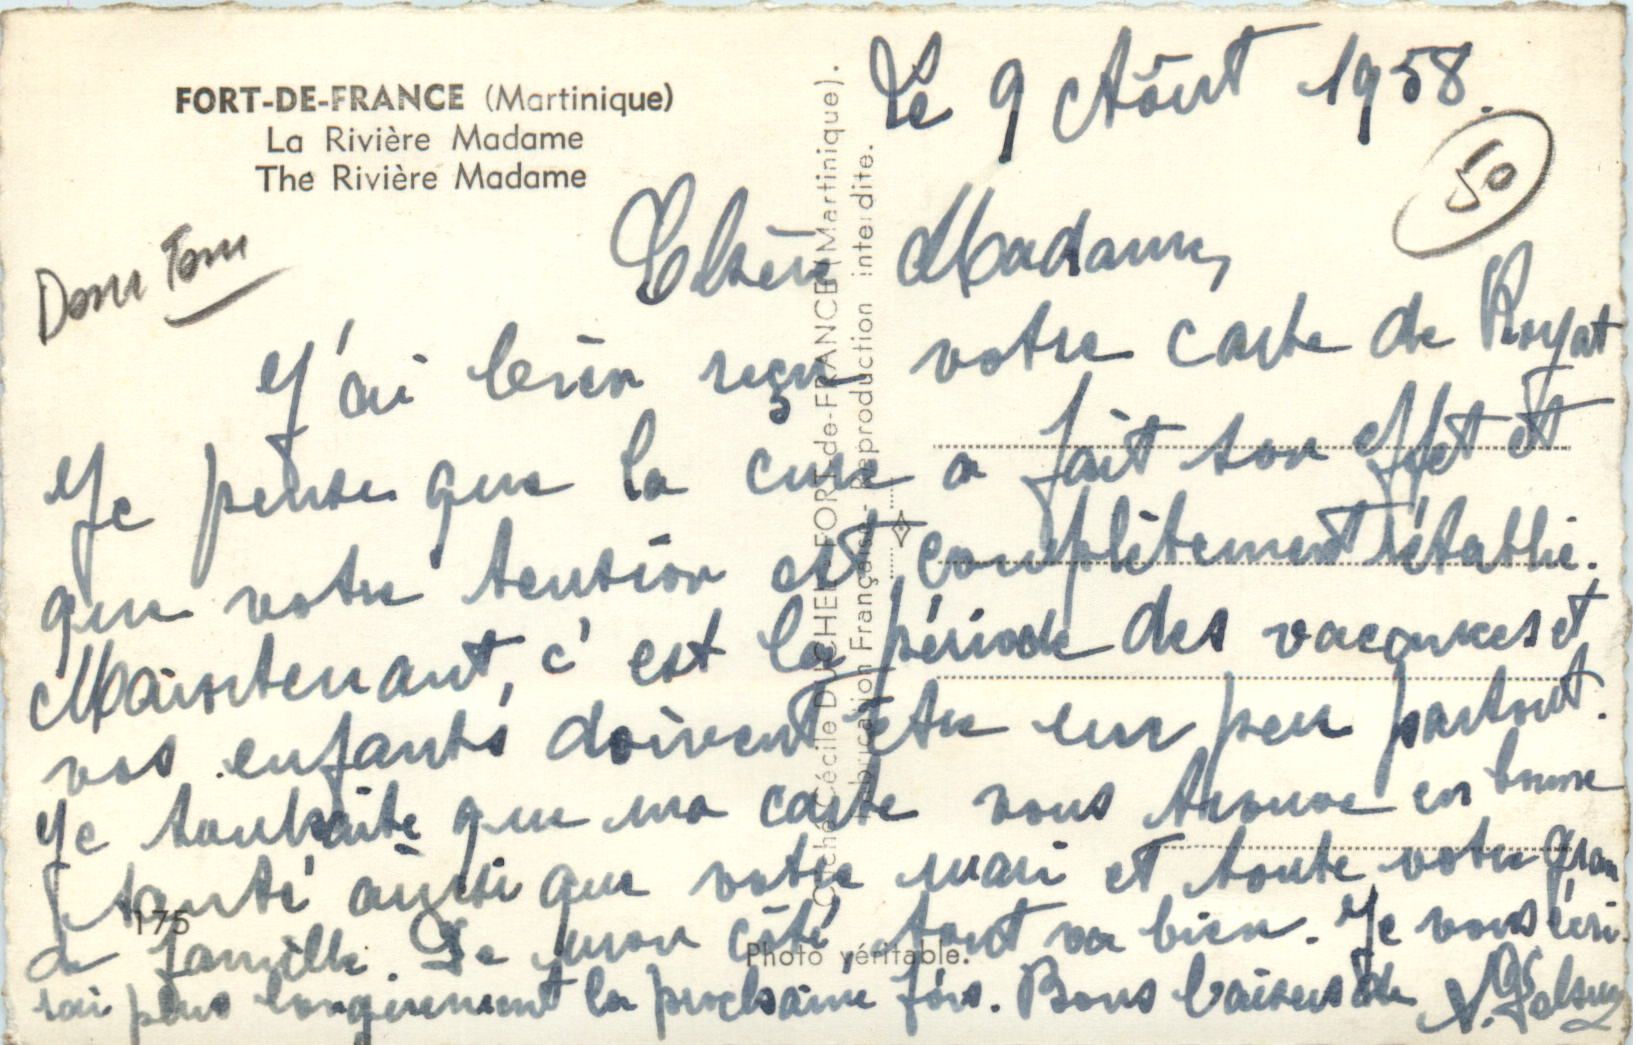 FORT-DE-FRANCE (Martinique)
La Rivière Madame
The Rivière Madame
Dom Tom
50
Le 9 Août 1958.
Chère Madame,
J'ai bien reçu votre carte de Royat
Je pense que la cure a fait son effet et
que votre tension est complètement rétablie.
Maintenant, c'est la période des vacances et
vos enfants doivent être un peu partout.
Je souhaite que ma carte vous trouve en bonne
santé ainsi que votre mari et toute votre gran
de famille. De mon côté, tout va bien. Je vous écri
rai plus longuement la prochaine fois. Bons baisers de
175
Photo véritable.
Cliché Cécile DUCHEL FORT-de-FRANCE (Martinique).
Fabrication Française - Reproduction interdite.